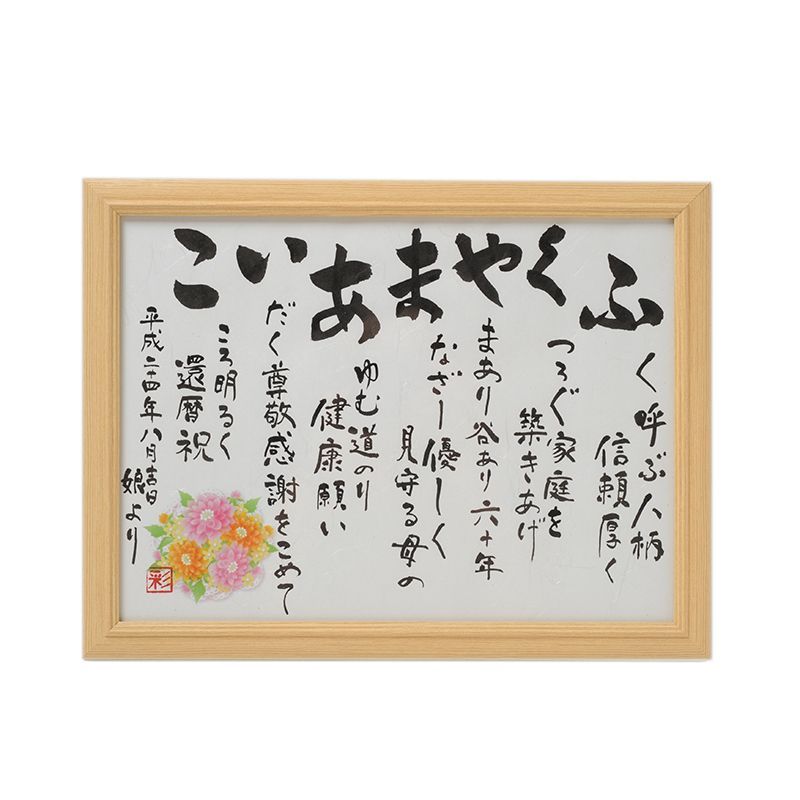 ふく呼ぶ人柄
信頼厚く
くつろぐ家庭を
築きあげ
やまあり谷あり六十年
まなざし優しく
見守る母の
あゆむ道のり
健康願い
いだく尊敬感謝をこめて
こころ明るく
還暦祝
平成二十四年八月吉日
娘より
彩